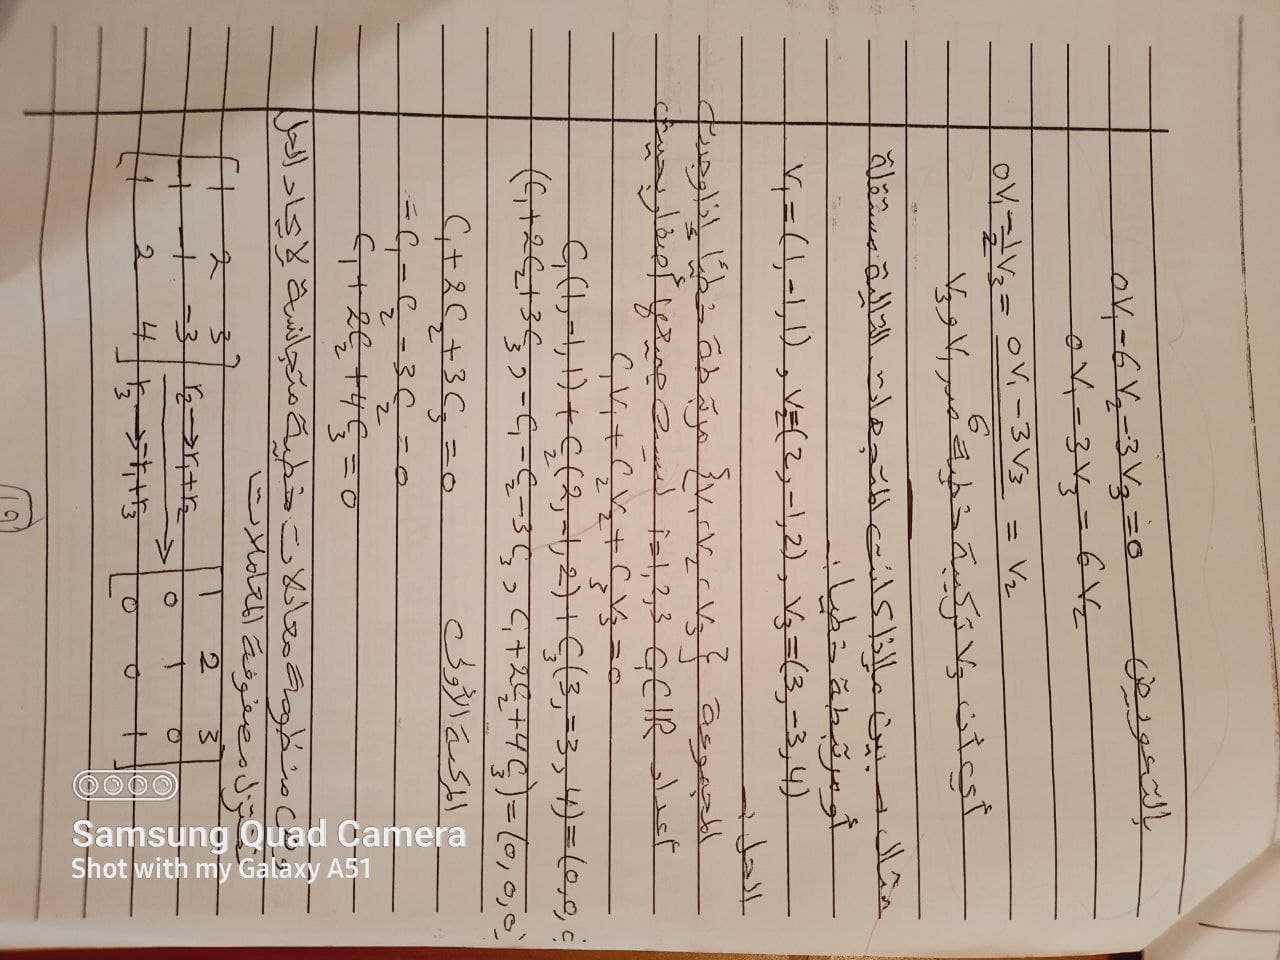 بالتعويض 0V₁-6V₂-3V₃=0
0V₁-3V₃=6V₂
0V₁-1/2V₃= (0V₁-3V₃)/6 = V₂
أي أن V₃ تركيبة خطية من V₁ و V₃
مثال - بين ما إذا كانت المتجهات التالية مستقلة
أو مرتبطة خطيا :-
V₁=(1,-1,1) , V₂=(2,-1,2), V₃=(3,-3,4)
الحل :-
المجموعة {V₁،V₂،V₃} مرتبطة خطيًا إذا وجدت
أعداد i=1,2,3 Cᵢ∈IR ليست جميعها أصفار بحيث
C₁V₁+C₂V₂+C₃V₃=0
C₁(1,-1,1)+C₂(2,-1,2)+C₃(3,-3,4)=(0,0,
(C₁+2C₂+3C₃,-C₁-C₂-3C₃,C₁+2C₂+4C₃)=(0,0,0)
المركبة الأولى C₁+2C₂+3C₃=0
-C₁-C₂-3C₂=0
C₁+2C₂+4C₃=0
منظومة معادلات خطية متجانسة لإيجاد الحل
نختزل مصفوفة المعاملات
[1 2 3] [1 2 3]
[-1 -1 -3] r₂→r₁+r₂ [0 1 0]
[1 2 4] r₃→-r₁+r₃ [0 0 1]
Samsung Quad Camera
Shot with my Galaxy A51